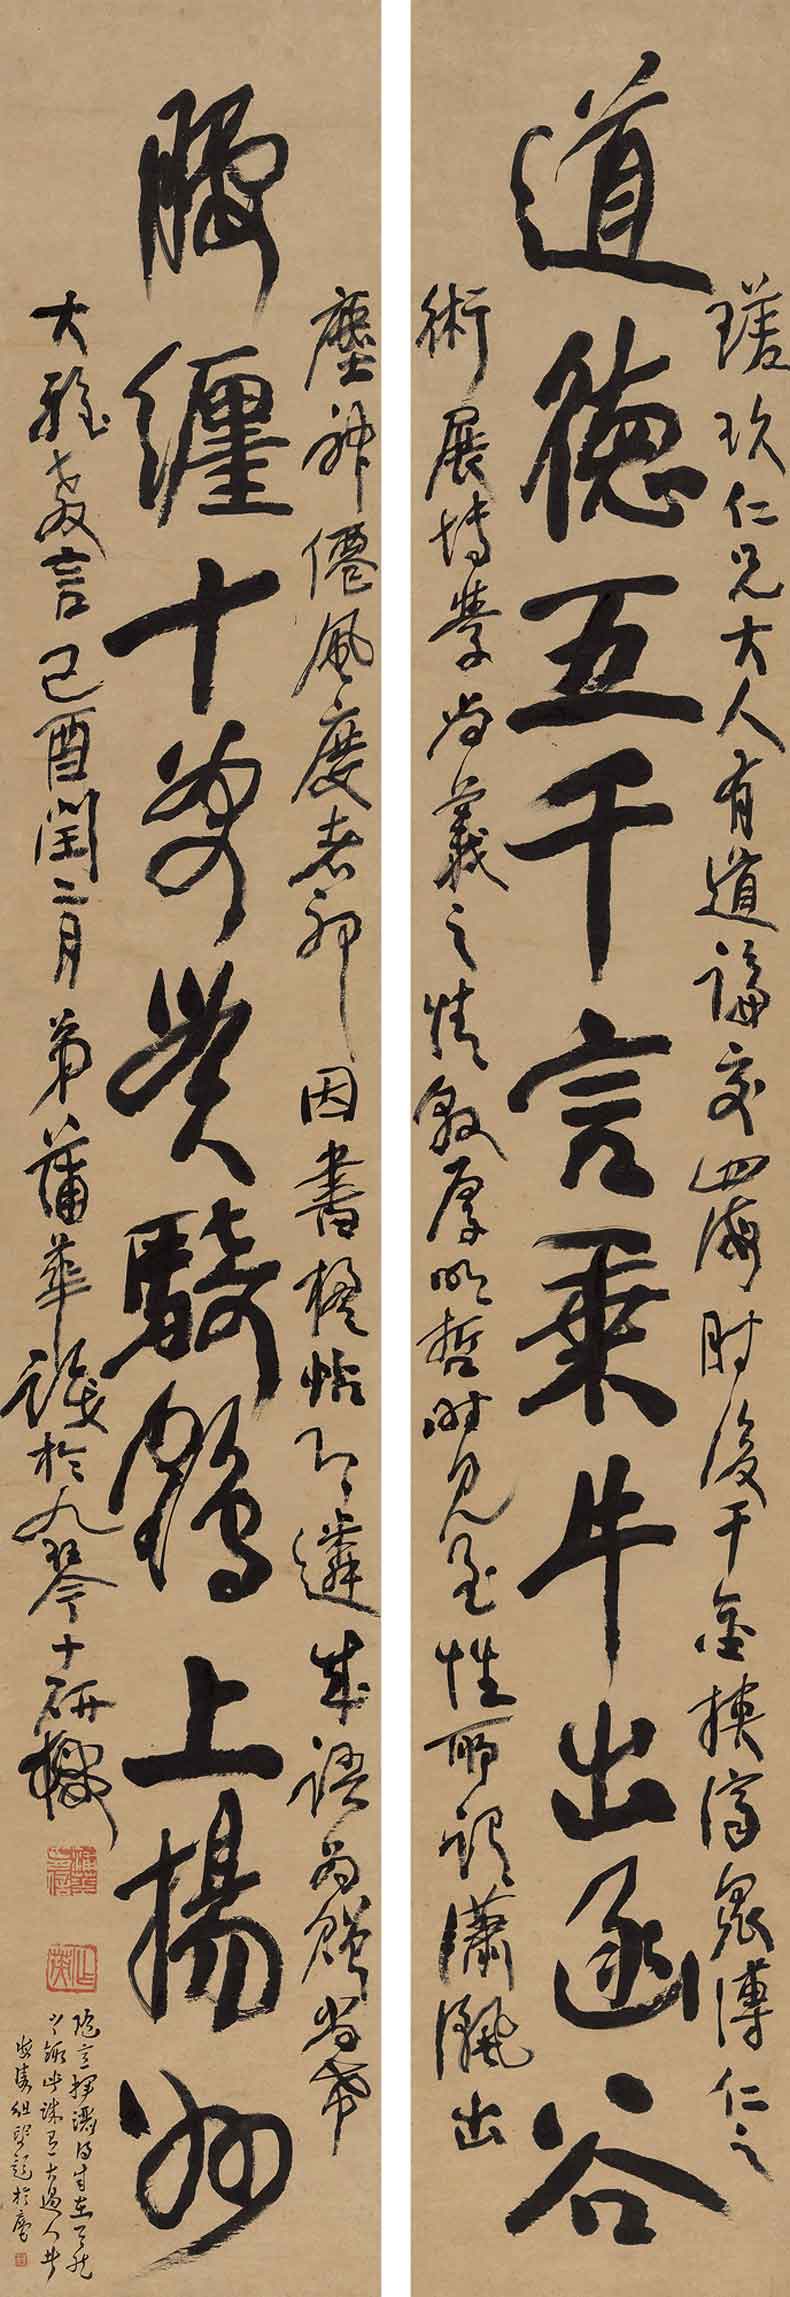 道德五千言乘牛出函谷
瑗玖仁兄大人有道論交四海肘後千金挾濟衆博仁之
術展博學尚義之情敦厚明哲時見至性所謂瀟灑出
塵神僊風度者耶因書楹帖即遴成語為贈尚希
腰纏十萬貫騎鶴上揚州
大雅教言己酉閏二月弟蒲華識於九琴十研樓